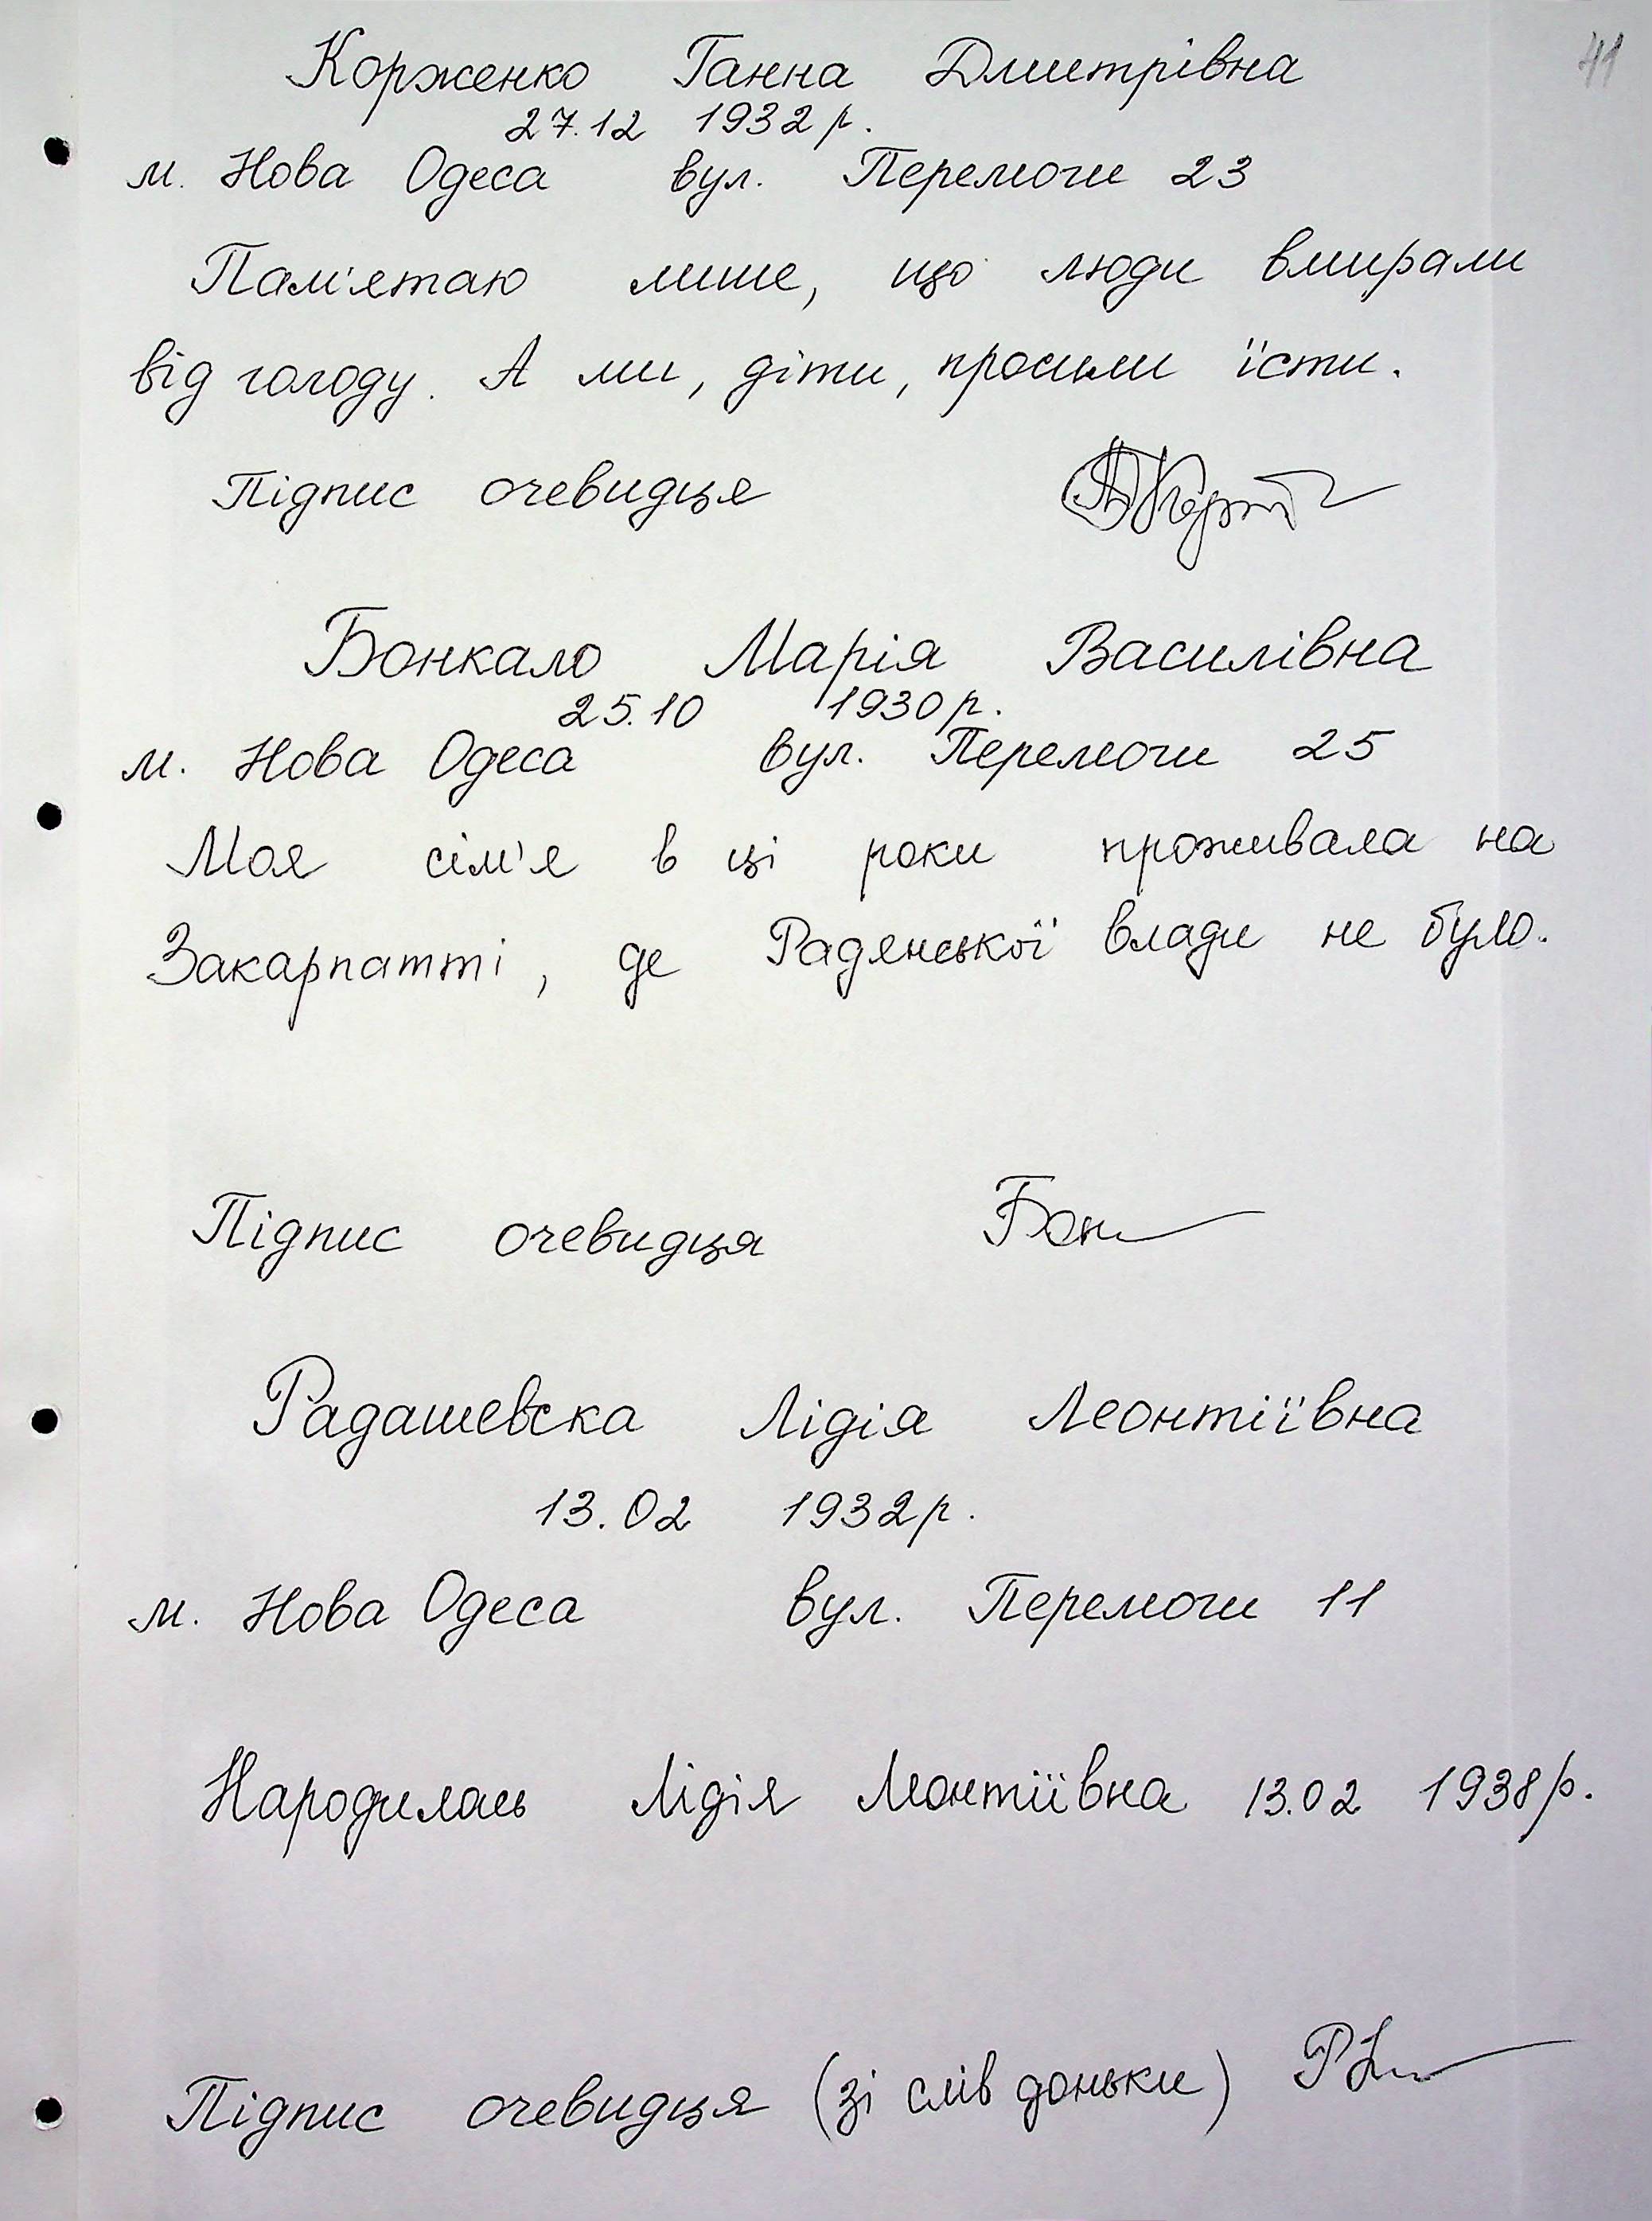 41
Корженко Ганна Дмитрівна
27.12 1932 р.
м. Нова Одеса вул. Перемоги 23
Пам'ятаю лише, що люди вмирали
від голоду. А ми, діти, просили їсти.
Підпис очевидця
Бонкало Марія Василівна
25.10 1930 р.
м. Нова Одеса вул. Перемоги 25
Моя сім'я в ці роки проживала на
Закарпатті, де Радянської влади не було.
Підпис очевидця Бон
Радашевска Лідія Леонтіївна
13.02 1932 р.
м. Нова Одеса вул. Перемоги 11
Народилась Лідія Леонтіївна 13.02 1938 р.
Підпис очевидця (зі слів доньки)